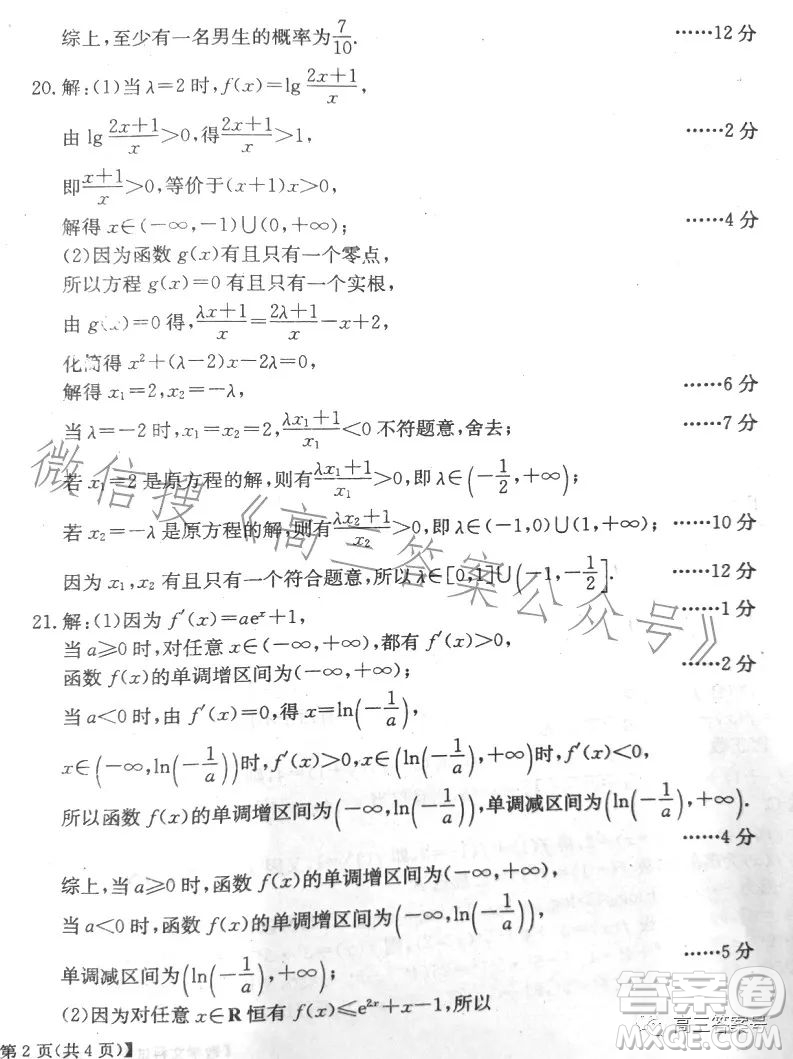 综上,至少有一名男生的概率为7/10. ……12分
20.解:(1)当λ=2时,f(x)=lg (2x+1)/x,
由 lg (2x+1)/x>0,得(2x+1)/x>1, ……2分
即(x+1)/x>0,等价于(x+1)x>0,
解得 x∈(-∞,-1)∪(0,+∞); ……4分
(2)因为函数 g(x)有且只有一个零点,
所以方程 g(x)=0有且只有一个实根,
由 g(x)=0得,(λx+1)/x=(2λ+1)/x-x+2,
化简得 x²+(λ-2)x-2λ=0,
解得 x₁=2,x₂=-λ, ……6分
当λ=-2时,x₁=x₂=2,(λx₁+1)/x₁<0 不符题意,舍去; ……7分
若 x₁=2 是原方程的解,则有(λx₁+1)/x₁>0,即λ∈(-1/2,+∞);
若 x₂=-λ 是原方程的解,则有(λx₂+1)/x₂>0,即λ∈(-1,0)∪(1,+∞); ……10分
因为 x₁,x₂ 有且只有一个符合题意,所以λ∈[0,1]∪(-1,-1/2]. ……12分
21.解:(1)因为 f′(x)=aeˣ+1, ……1分
当 a≥0 时,对任意 x∈(-∞,+∞),都有 f′(x)>0,
函数 f(x)的单调增区间为(-∞,+∞); ……2分
当 a<0 时,由 f′(x)=0,得 x=ln(-1/a),
x∈(-∞,ln(-1/a))时,f′(x)>0,x∈(ln(-1/a),+∞)时,f′(x)<0,
所以函数 f(x)的单调增区间为(-∞,ln(-1/a)),单调减区间为(ln(-1/a),+∞).
……4分
综上,当 a≥0 时,函数 f(x)的单调增区间为(-∞,+∞);
当 a<0 时,函数 f(x)的单调增区间为(-∞,ln(-1/a)),
单调减区间为(ln(-1/a),+∞); ……5分
(2)因为对任意 x∈R 恒有 f(x)≤e²ˣ+x-1,所以
第2页(共4页)】
微信搜《高三答案公众号》
答案圈
高三答案号
MXQE.COM